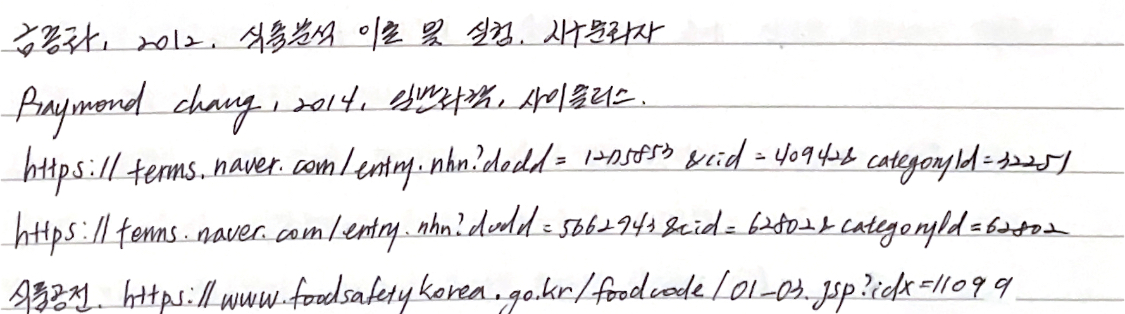 2012. 식품분석 이론 및 실험.
Raymond chang, 2014, 일반화학, 사이플러스.
https://terms.naver.com/entry.nhn?docId=1205853&cid=40942&categoryId=32251
https://terms.naver.com/entry.nhn?docId=5662943&cid=62802&categoryId=62802
식품공전. https://www.foodsafetykorea.go.kr/foodcode/01-03.jsp?idx=11099